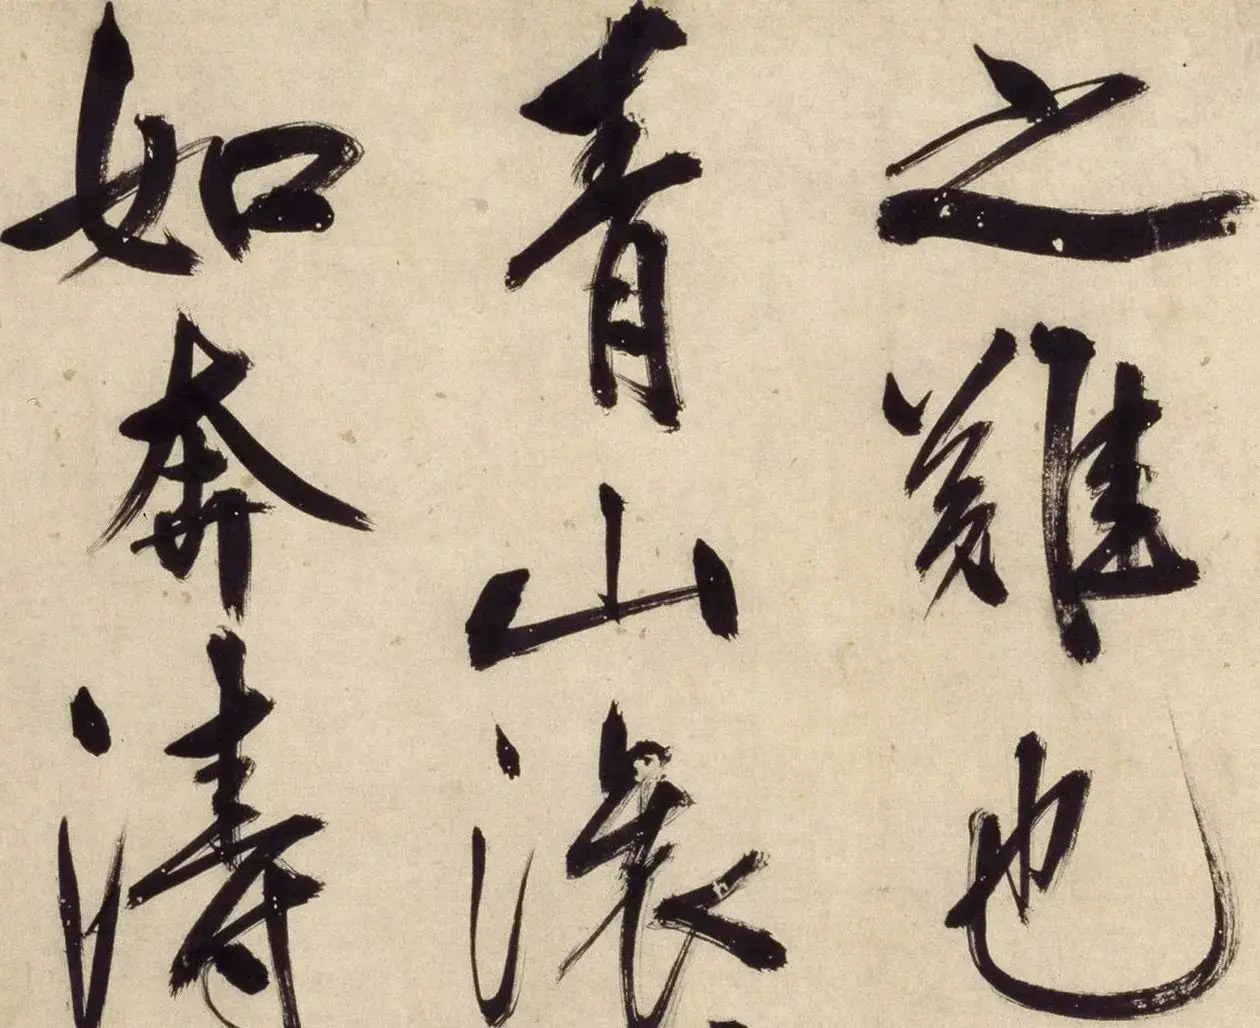 之難也
青山滾
如奔濤